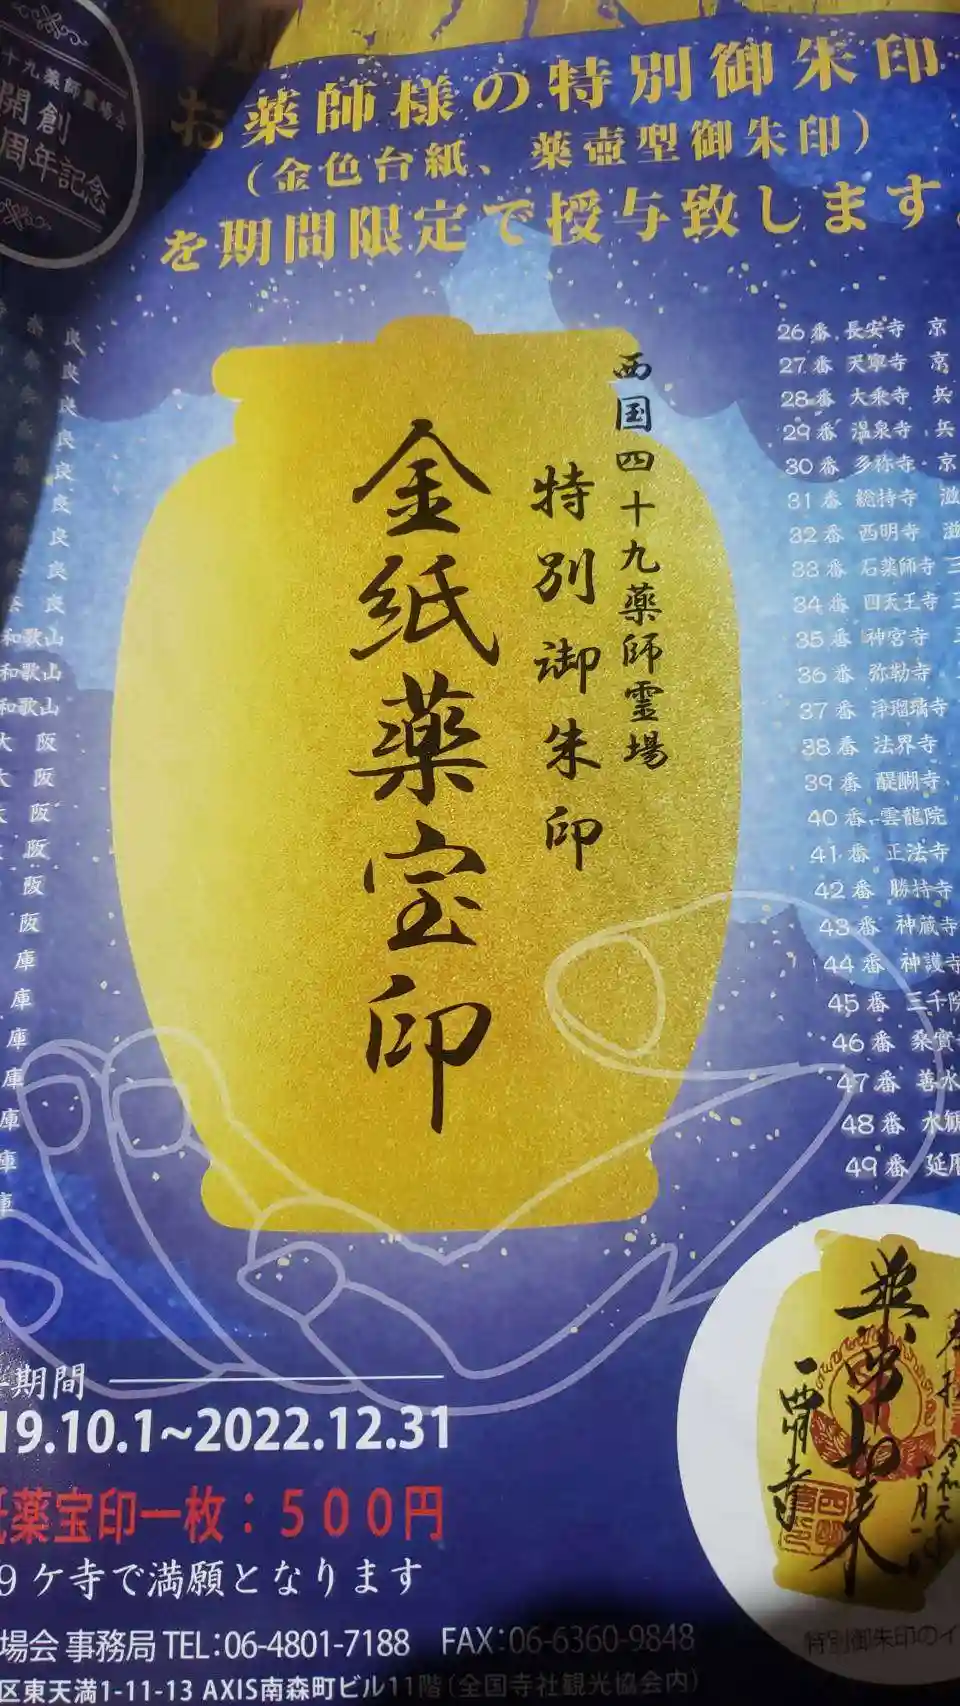 十九薬師霊場会
開創
周年記念
お薬師様の特別御朱印
（金色台紙、薬壺型御朱印）
を期間限定で授与致します。
西国四十九薬師霊場
特別御朱印
金紙薬宝印
良
良
良
良
良
良
良
良
良
和歌山
和歌山
和歌山
大阪
阪
阪
阪
阪
阪
庫
庫
庫
庫
庫
庫
庫
26番 長安寺 京
27番 天寧寺 京
28番 大乗寺 兵
29番 温泉寺 兵
30番 多祢寺 京
31番 総持寺 滋
32番 西明寺 滋
33番 石薬師寺 三
34番 四天王寺 三
35番 神宮寺
36番 弥勒寺
37番 浄瑠璃寺
38番 法界寺
39番 醍醐寺
40番 雲龍院
41番 正法寺
42番 勝持寺
43番 神蔵寺
44番 神護寺
45番 三千院
46番 桑實
47番 善水
48番 水観
49番 延暦
期間
19.10.1~2022.12.31
紙薬宝印一枚：500円
9ケ寺で満願となります
場会 事務局 TEL：06-4801-7188 FAX：06-6360-9848
区東天満1-11-13 AXIS南森町ビル11階（全国寺社観光協会内）
薬師如来
西明寺
令和元年
六月一
特別御朱印のイ